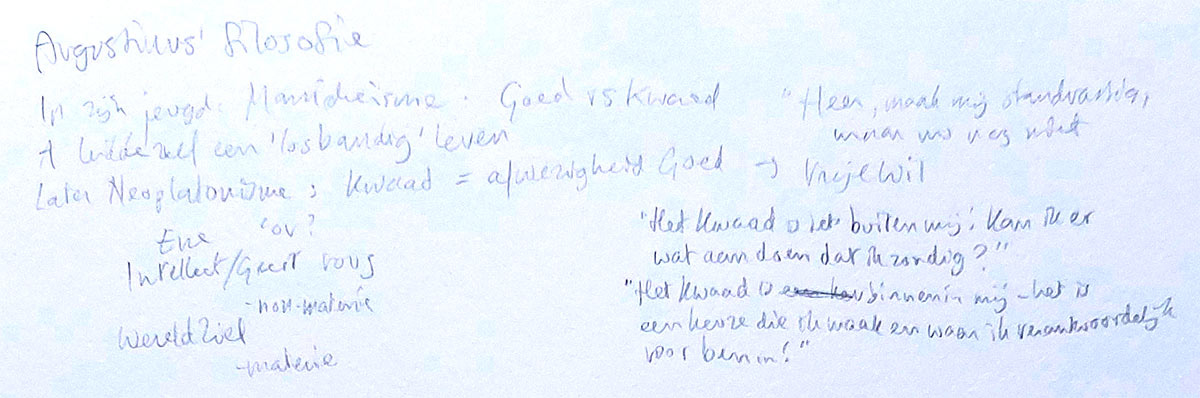 Augustinus' filosofie
In zijn jeugd: Manicheïsme. Goed vs Kwaad
A leidde zelf een 'losbandig' leven
"Heer, maak mij standvastig,
maar nu nog niet
Later Neoplatonisme: Kwaad = afwezigheid Goed → Vrije Wil
Ene 'ov'?
Intellect/Geest vous
-non-materie
Wereldziel
-materie
"Het Kwaad is iets buiten mij! Kan ik er
wat aan doen dat ik zondig?"
"Het Kwaad is binnenin mij – het is
een keuze die ik maak en waar ik verantwoordelijk
voor ben!"